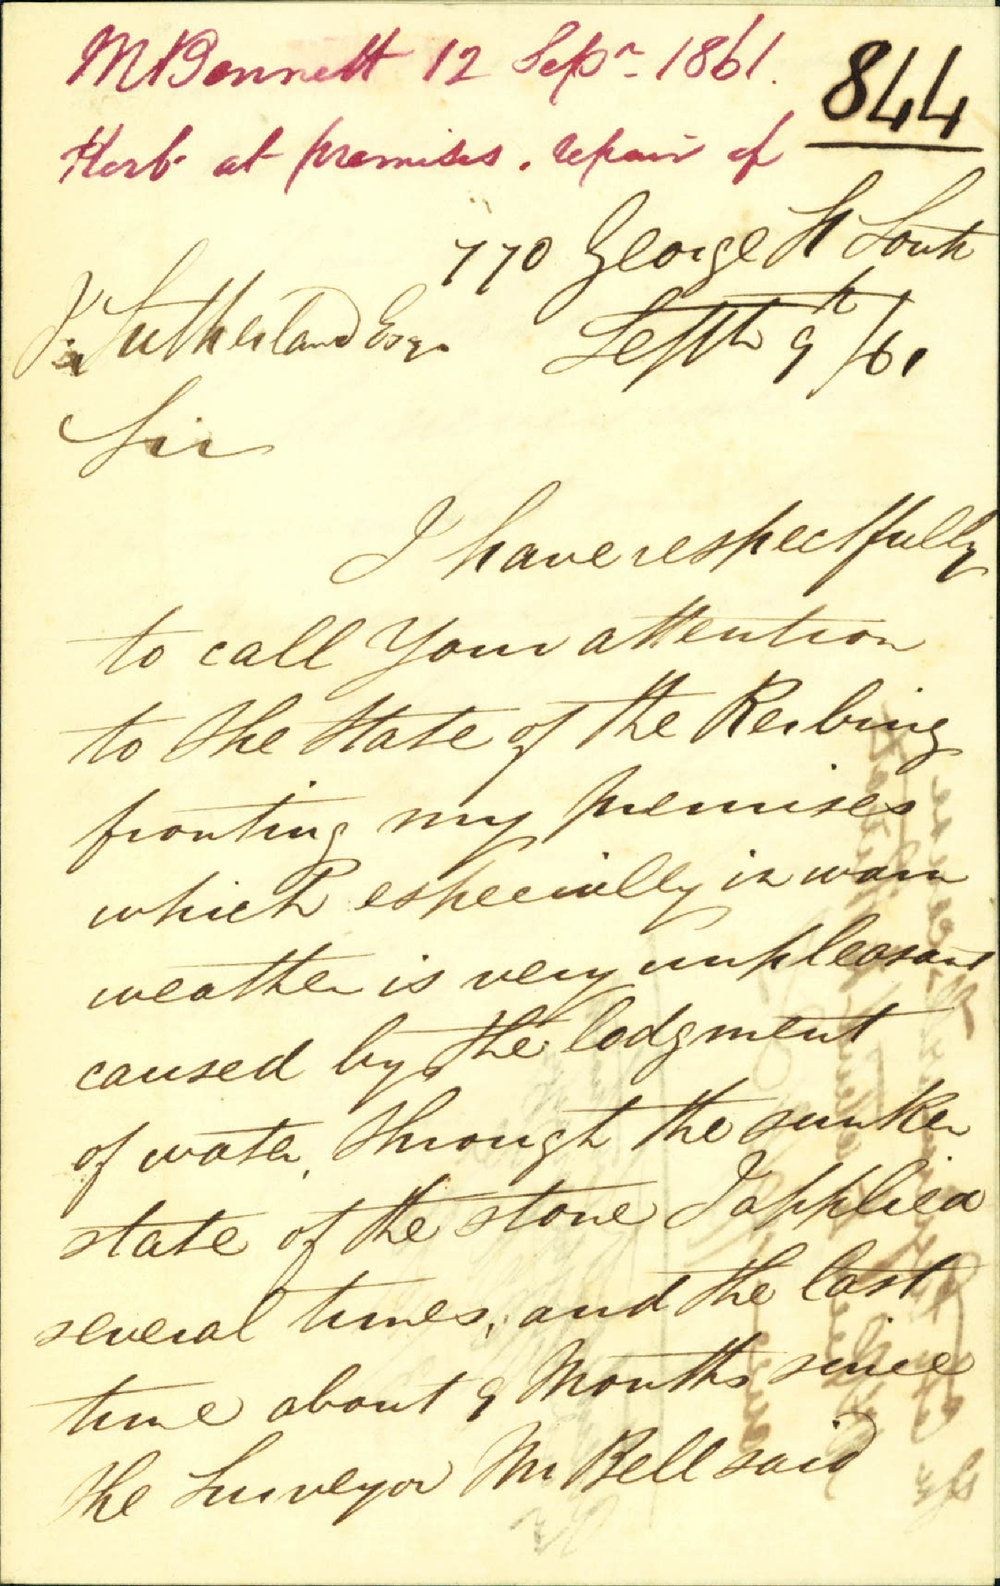 M Bennett 12 Sepr. 1861.
844
Kerb at premises. repair of
770 George St South
J. Sutherland Esqr
Septh 9th/61
Sir
I have respectfully
to call Your attention
to the State of the Kerbing
fronting my premises
which especially in warm
weather is very unpleasant
caused by the lodgment
of water, through the sunken
state of the stone I applied
several times, and the last
time about 9 Months since
the Surveyor Mr Bell said